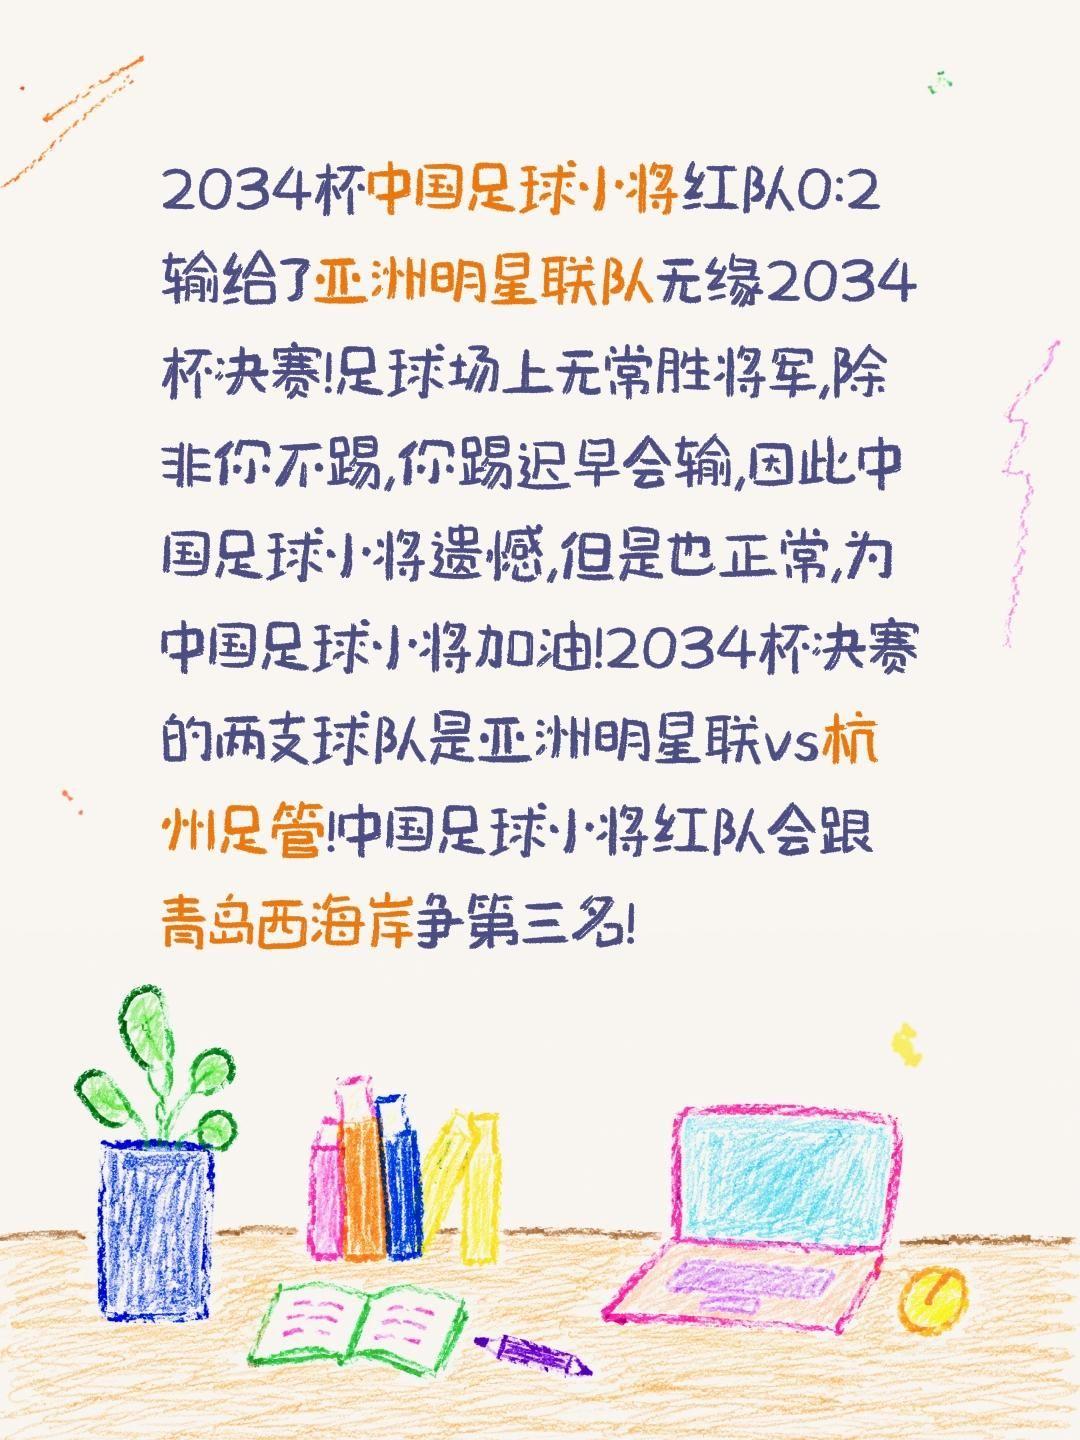 2034杯中国足球小将红队0:2
输给了亚洲明星联队无缘2034
杯决赛!足球场上无常胜将军,除
非你不踢,你踢迟早会输,因此中
国足球小将遗憾,但是也正常,为
中国足球小将加油!2034杯决赛
的两支球队是亚洲明星联vs杭
州足管!中国足球小将红队会跟
青岛西海岸争第三名!